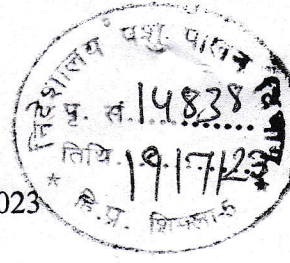 निदेशालय पशु पालन
पृ. सं. 14838
तिथि 19/7/23
हि.प्र. शिमला-5
023